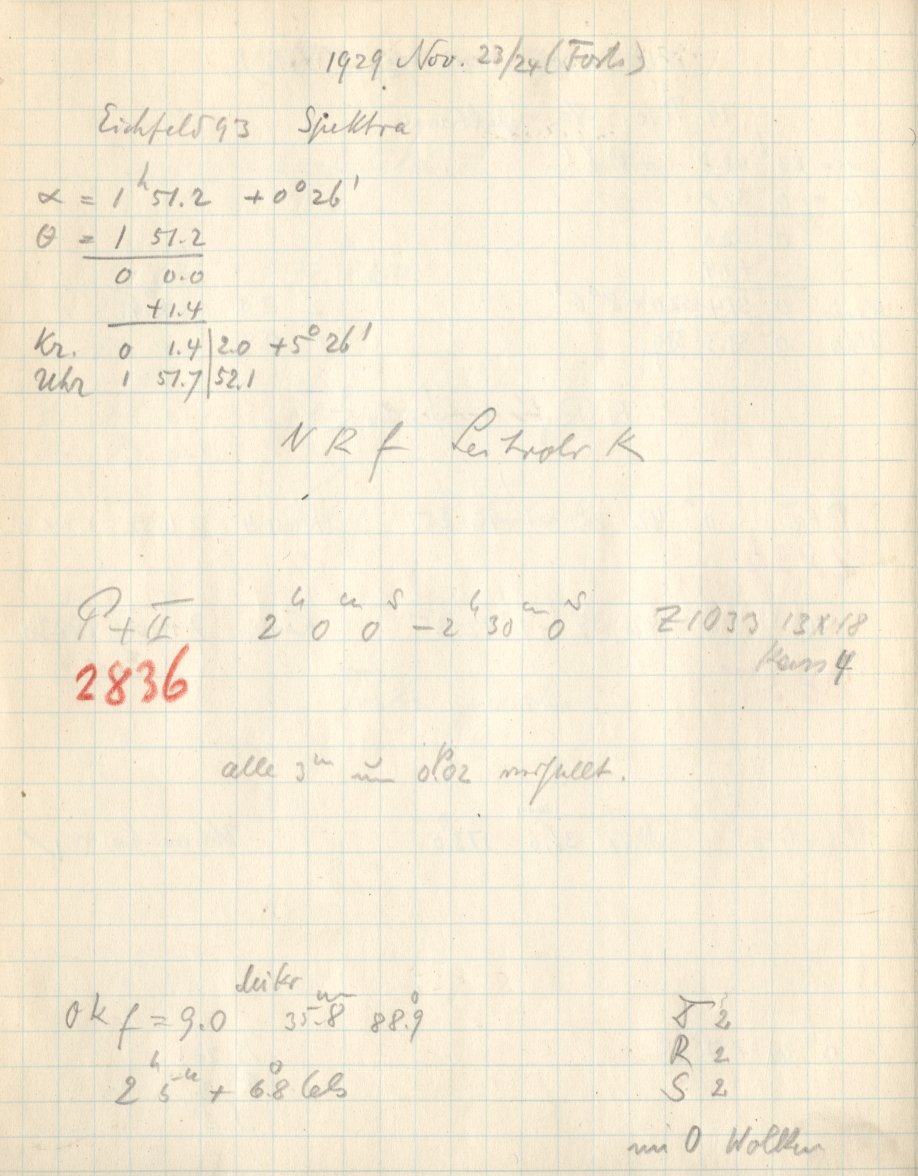 1929 Nov. 23/24 (Forts)
Eichfeld 93 Spektra
α = 1ʰ 51.2 +0° 26'
θ = 1 51.2
0 0.0
+1.4
Kr. 0 1.4 | 2.0 +5° 26'
Uhr 1 51.7 | 52.1
N R f Leitrohr K
P + II 2ʰ 0ᵐ 0ˢ – 2ʰ 30ᵐ 0ˢ Z 1033 13 x 18
Kass 4
2836
alle 3ᵐ um 0.02 verstellt.
Leitr
Ok f = 9.0 35.8ᵐᵐ 88.9°
2ʰ 5ᵐ + 6.8° Cels
2
R 2
S 2
im O Wolken